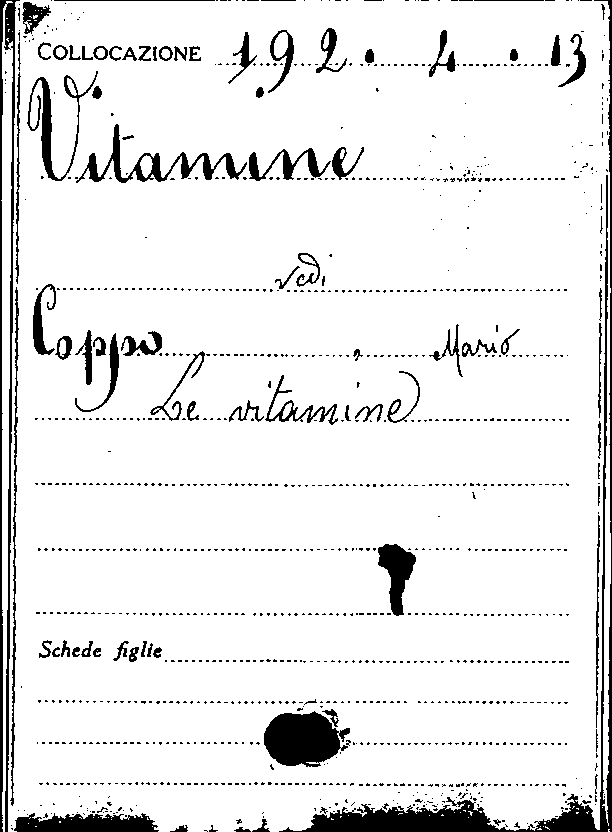 COLLOCAZIONE 192. 4. 13
Vitamine
vedi
Coppo, Mario
Le vitamine
Schede figlie